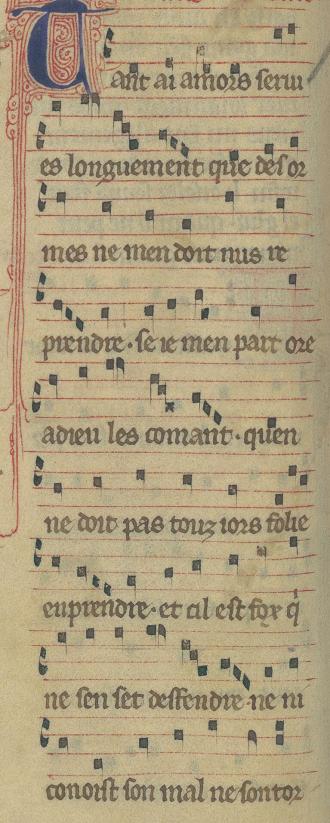 Tant ai amors serui
es longuement que des or
mes ne men doit nus re
prendre · se ie men part ore
adieu les comant · quen
ne doit pas touz iors folie
enprendre · et cil est fox q̇
ne sen set deffendre ne ni
conoist son mal ne son tor